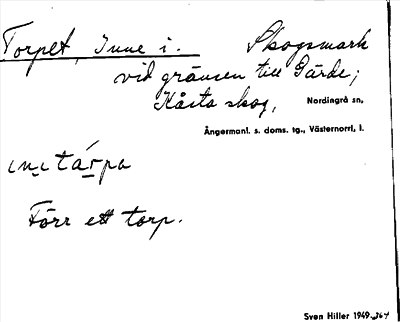 Torpet, Inne i. Skogsmark
vid gränsen till Gärde;
Hårsta skog, Nordingrå sn,
Ångermanl. s. doms. tg., Västernorrl, l.
ini tárpa
Förr ett torp.
Sven Hiller 1949.